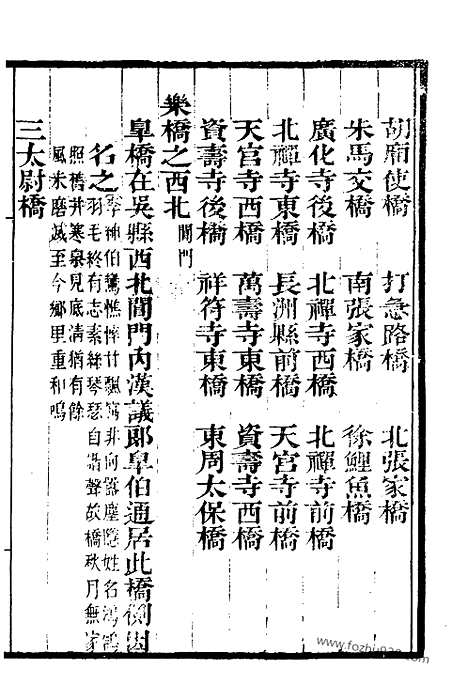 胡廂使橋 打急路橋 北張家橋
朱馬交橋 南張家橋 徐鯉魚橋
廣化寺後橋 北禪寺西橋 北禪寺前橋
北禪寺東橋 長洲縣前橋 天宮寺前橋
天宮寺西橋 萬壽寺東橋 資壽寺西橋
資壽寺後橋 祥符寺東橋 東周太保橋
樂橋之西北閶門
皐橋在吳縣西北閶門內漢議郎皐伯通居此橋側因
名之
伯鸞憔悴
非向囂塵隱姓名鴻
羽毛終有志素絲琴瑟自諧聲故橋秋月無家
照 井寒泉見底清猶有餘
風未磨滅至今鄉里重和鳴
三太尉橋
www.fozhu920.com